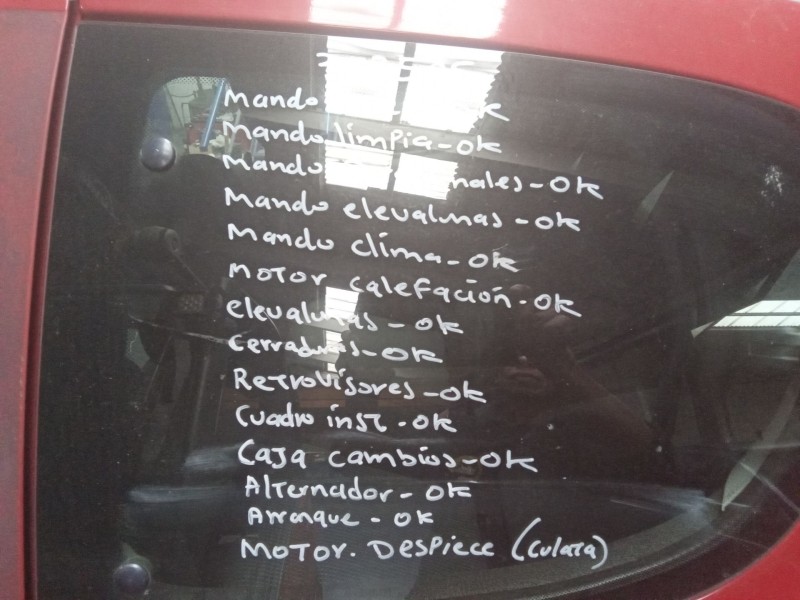 Mando OK
Mando limpia-OK
Mando -OK
Mando elevalunas-OK
Mando clima-OK
MOTOR calefación-OK
elevalunas-OK
cerraduras-OK
RETROVISORES-OK
Cuadro inst.OK
Caja cambios-OK
Alternador-OK
Arranque-OK
MOTOR. DESPIECE (culata)